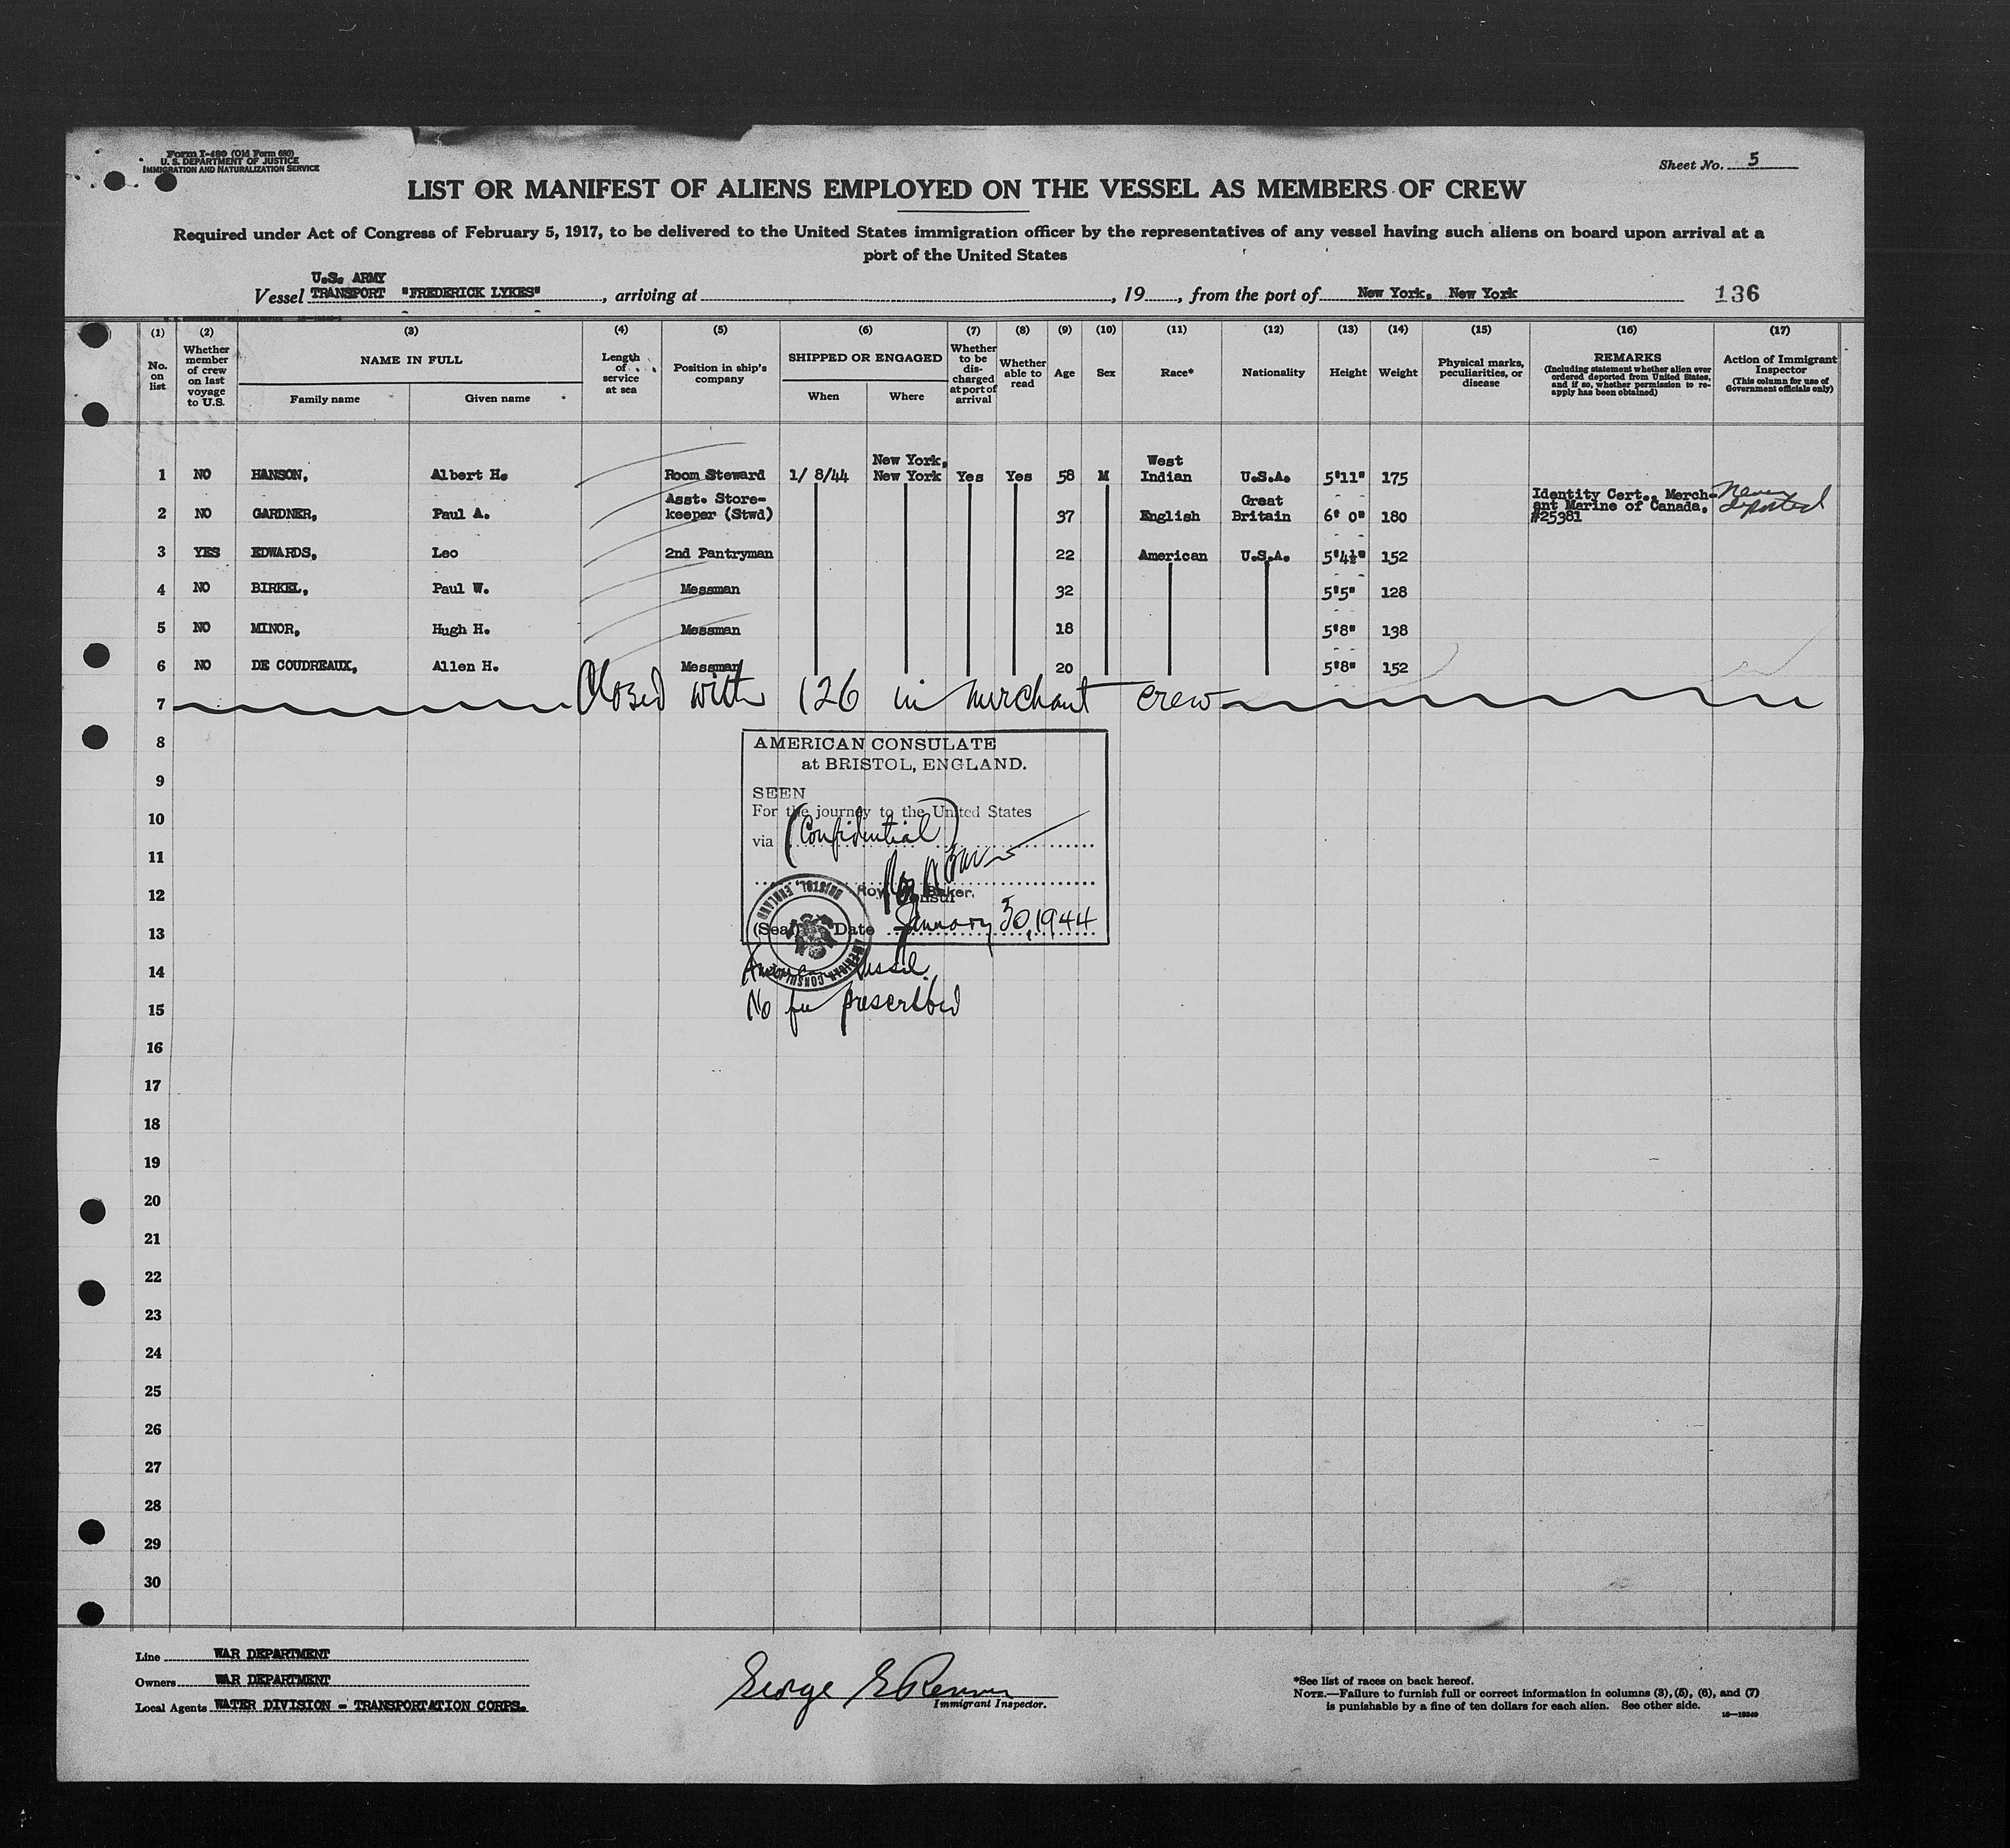 Form I-480 (Old Form 680)
U. S. DEPARTMENT OF JUSTICE
IMMIGRATION AND NATURALIZATION SERVICE
Sheet No. 5
LIST OR MANIFEST OF ALIENS EMPLOYED ON THE VESSEL AS MEMBERS OF CREW
Required under Act of Congress of February 5, 1917, to be delivered to the United States immigration officer by the representatives of any vessel having such aliens on board upon arrival at a
port of the United States
Vessel U.S. ARMY TRANSPORT "FREDERICK LYKES", arriving at, 19, from the port of New York, New York 136
(1) (2) (3) (4) (5) (6) (7) (8) (9) (10) (11) (12) (13) (14) (15) (16) (17)
No. on list
Whether member of crew on last voyage to U.S.
NAME IN FULL
Family name
Given name
Length of service at sea
Position in ship's company
SHIPPED OR ENGAGED
When
Where
Whether to be discharged at port of arrival
Whether able to read
Age
Sex
Race*
Nationality
Height
Weight
Physical marks, peculiarities, or disease
REMARKS
(Including statement whether alien ever ordered deported from United States, and if so, whether permission to reapply has been obtained)
Action of Immigrant Inspector
(This column for use of Government officials only)
1 NO HANSON, Albert H. Room Steward 1/ 8/44 New York, New York Yes Yes 58 M West Indian U.S.A. 5'11" 175
2 NO GARDNER, Paul A. Asst. Store-keeper (Stwd) 37 English Great Britain 6' 0" 180 Identity Cert., Merchant Marine of Canada, #25381 Never deported
3 YES EDWARDS, Leo 2nd Pantryman 22 American U.S.A. 5'4½" 152
4 NO BIRKEL, Paul W. Messman 32 5'5" 128
5 NO MINOR, Hugh H. Messman 18 5'8" 138
6 NO DE COUDREAUX, Allen H. Messman 20 5'8" 152
7 Closed with 126 in merchant crew
8
AMERICAN CONSULATE
at BRISTOL, ENGLAND.
9
SEEN
For the journey to the United States
10
via (Confidential)
11
12
Roy Baker,
Consul
13
(Seal) Date January 30, 1944
AMERICAN CONSULATE BRISTOL, ENGLAND
14
American Vessel.
15
No fee prescribed
16
17
18
19
20
21
22
23
24
25
26
27
28
29
30
Line WAR DEPARTMENT
Owners WAR DEPARTMENT
Local Agents WATER DIVISION - TRANSPORTATION CORPS.
George E
Immigrant Inspector.
*See list of races on back hereof.
NOTE.—Failure to furnish full or correct information in columns (3), (5), (6), and (7)
is punishable by a fine of ten dollars for each alien. See other side.